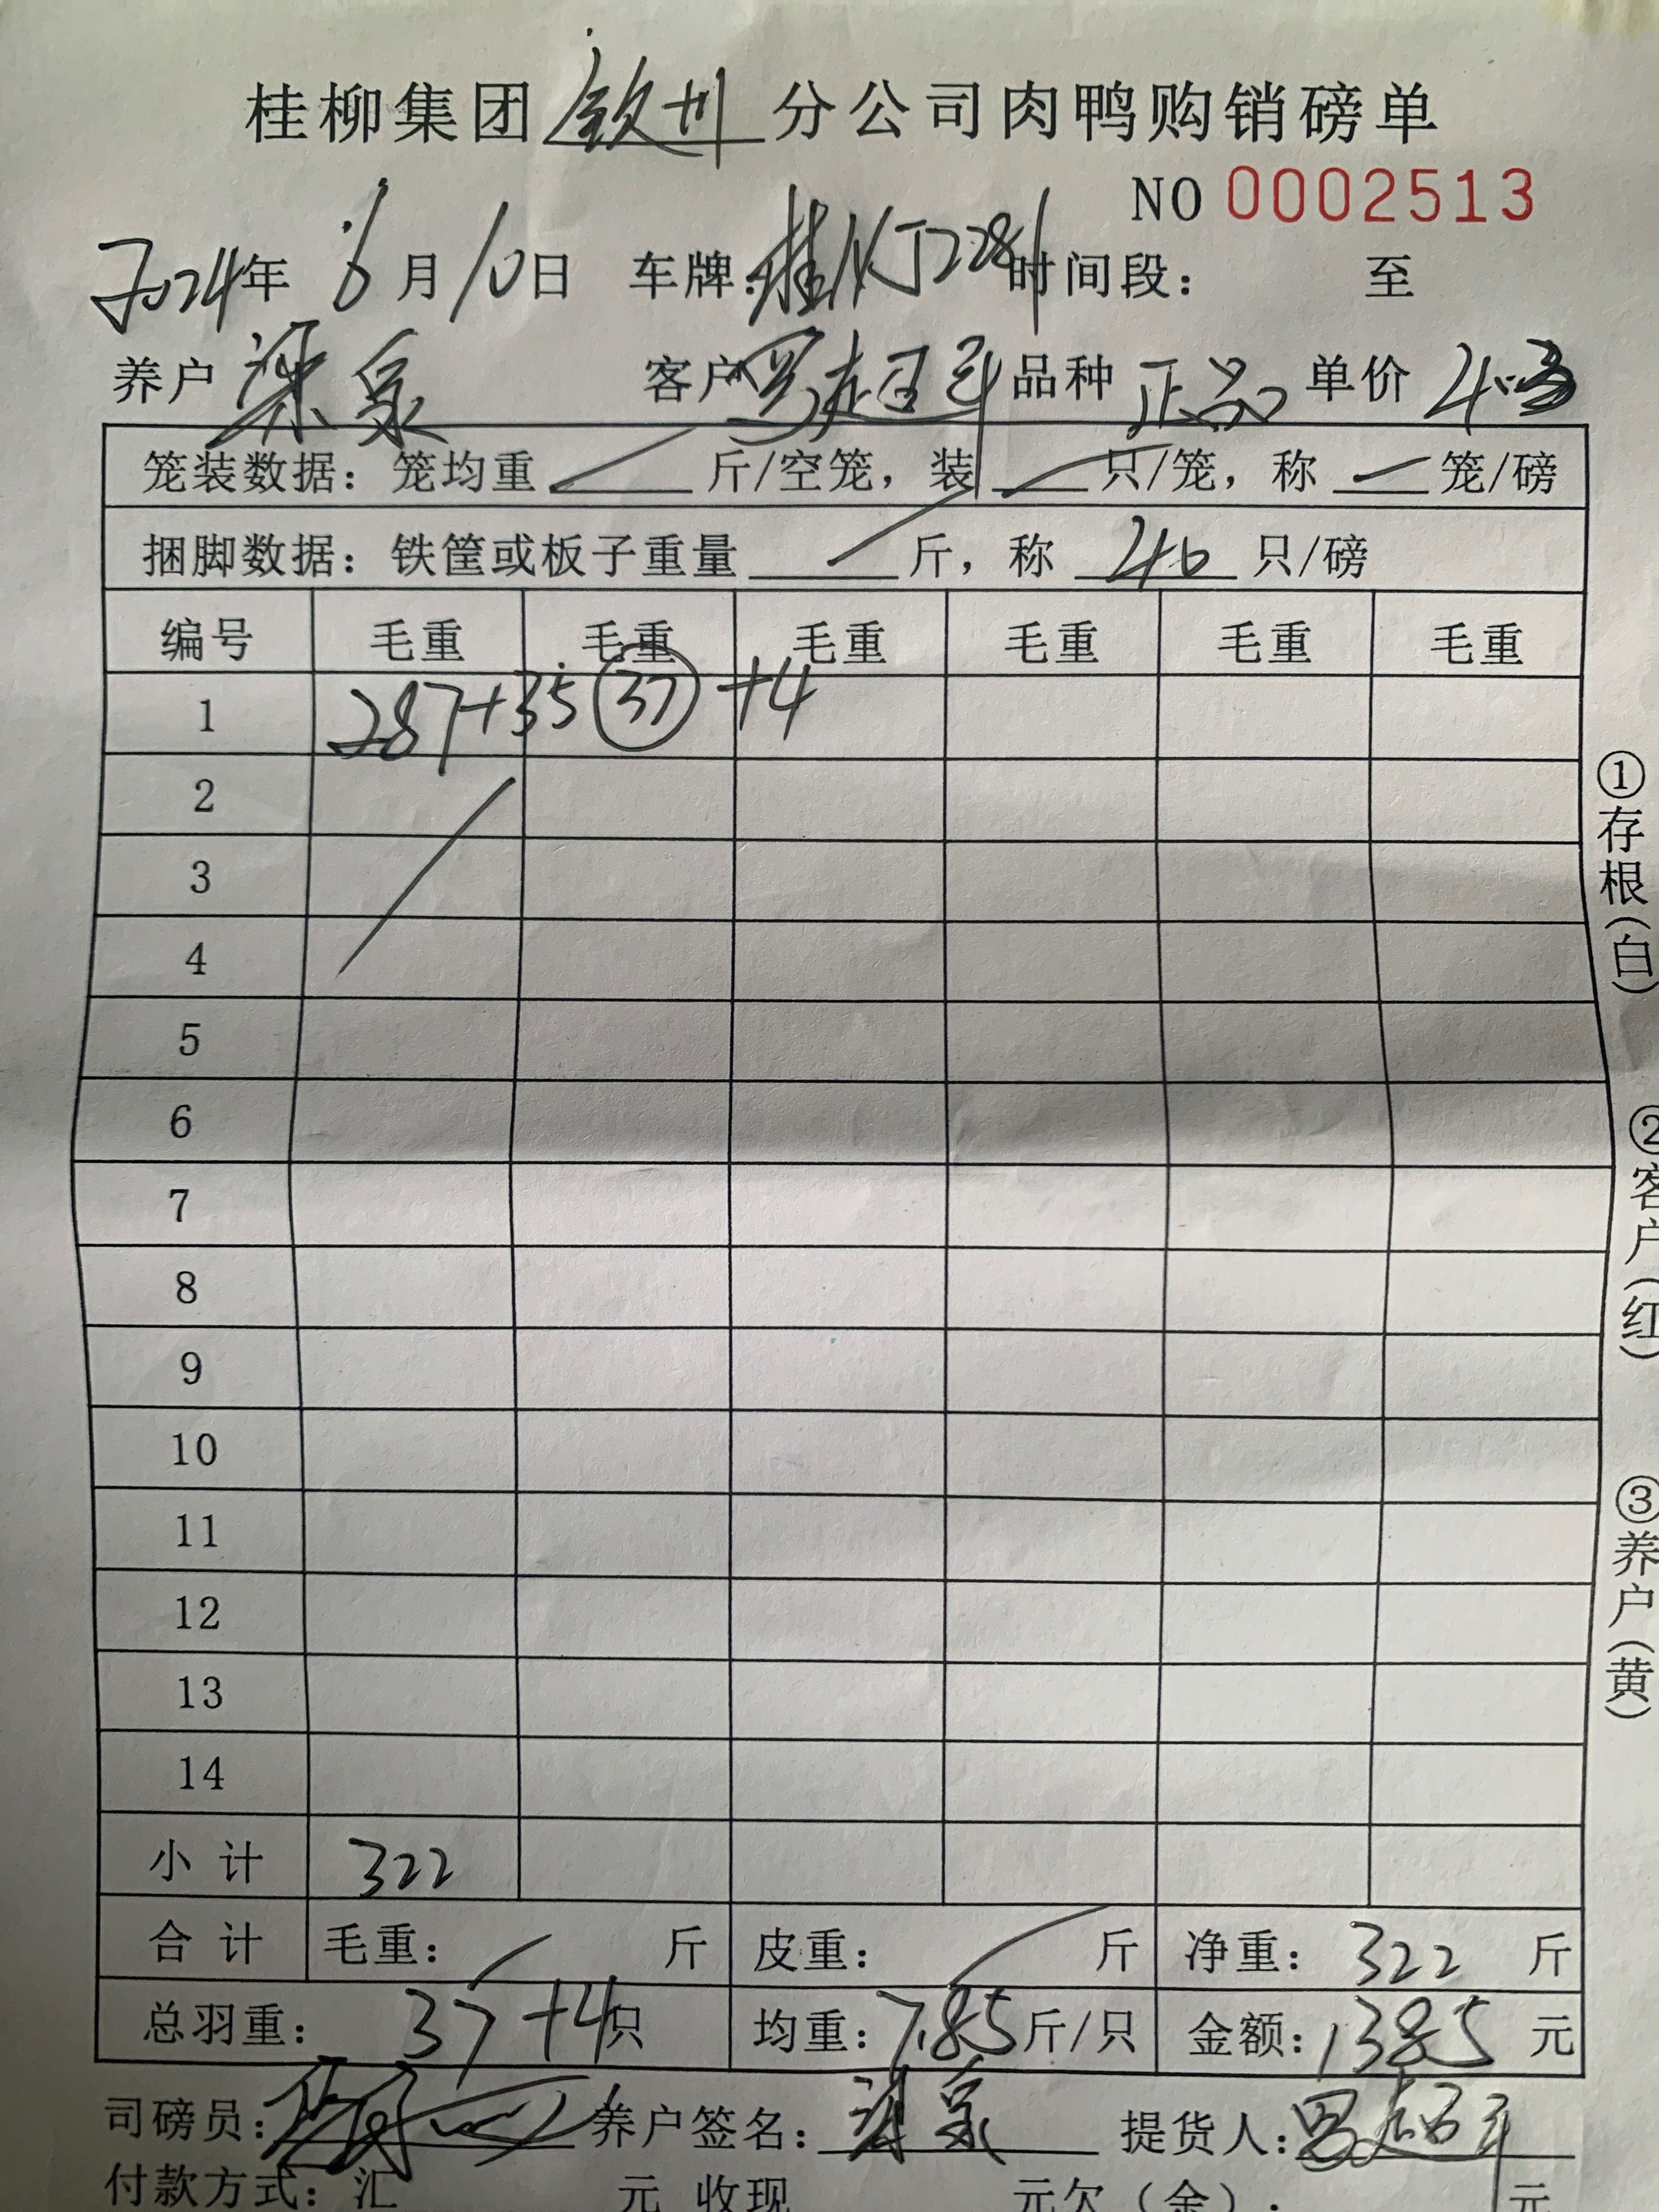 桂柳集团 钦州 分公司肉鸭购销磅单
NO 0002513
2024年 6月 10日 车牌: 桂KJ2281 时间段: 至
养户 梁泉 客户 罗超 品种 正品 单价 4.3
笼装数据: 笼均重 斤/空笼, 装 只/笼, 称 笼/磅
捆脚数据: 铁筐或板子重量 斤, 称 只/磅
编号 毛重 毛重 毛重 毛重 毛重 毛重
1 287+35 37 +4
2
3
4
5
6
7
8
9
10
11
12
13
14
小计 322
合计 毛重: 斤 皮重: 斤 净重: 322 斤
总羽重: 37+4只 均重: 7.85斤/只 金额: 1385 元
司磅员: 养户签名: 梁泉 提货人: 罗超
付款方式: 汇 元 收现 元欠(余): 元
①存根(白)
②客户(红)
③养户(黄)